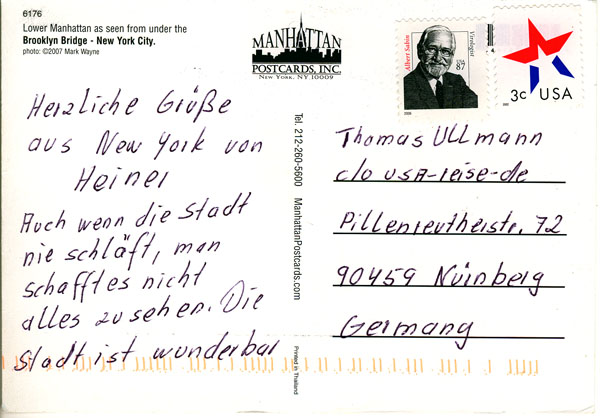 6176
Lower Manhattan as seen from under the
Brooklyn Bridge - New York City.
photo: ©2007 Mark Wayne
MANHATTAN
POSTCARDS, INC.
NEW YORK, NY 10009
Tel. 212-260-5600 ManhattanPostcards.com
Printed in Thailand
Albert Sabin
Virologist
USA
87
2006
3c USA
Herzliche Grüße
aus New York von
Heiner
Auch wenn die Stadt
nie schläft, man
schafft es nicht
alles zu sehen. Die
Stadt ist wunderbar
Thomas Ullmann
c/o USA-reise-de
Pillenreutherstr. 72
90459 Nürnberg
Germany